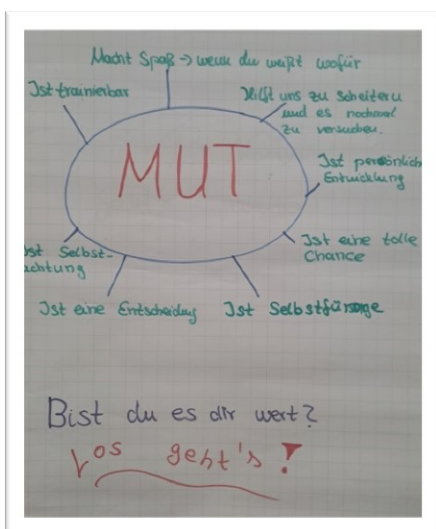 Macht Spaß → wenn du weißt wofür
Ist trainierbar
Hilft uns zu scheitern
und es nochmal
zu versuchen.
MUT
Ist persönlich
Entwicklung
Ist eine tolle
Chance
Ist Selbst-
achtung
Ist eine Entscheidung
Ist Selbstfürsorge
Bist du es dir wert?
Los geht's!